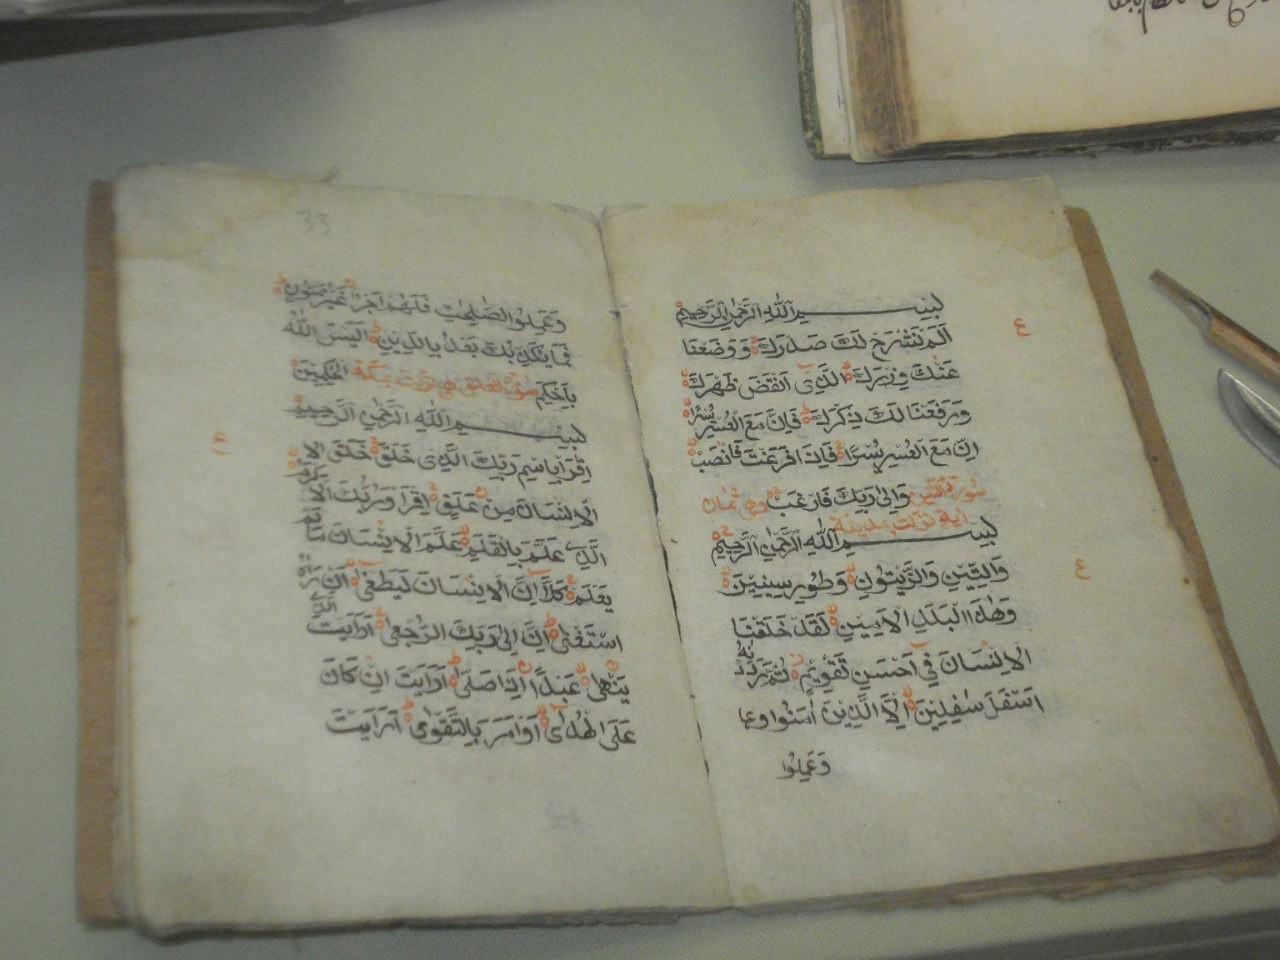 بسم الله الرحمن الرحيم
ع
الم نشرح لك صدرك و وضعنا
عنك وزرك الذي انقض ظهرك
ورفعنا لك ذكرك فان مع العسر يسرا
ان مع العسر يسرا فاذا فرغت فانصب
والى ربك فارغب سورة التين وهي ثمان
اية نزلت بمدينة
بسم الله الرحمن الرحيم
ع
والتين والزيتون وطور سينين
وهذا البلد الامين لقد خلقنا
الانسان في احسن تقويم ثم رددنه
اسفل سفلين الا الذين امنوا وعملوا
وعملوا
33
وعملوا الصلحت فلهم اجر غير ممنون
فما يكذبك بعد بالدين اليس الله
باحكم الحكمين سورة العلق هي نزلت بمكة
بسم الله الرحمن الرحيم
اقرا باسم ربك الذي خلق خلق الا
الانسان من علق اقرا وربك الاكرم
الذي علم بالقلم علم الانسان ما لم
يعلم كلا ان الانسان ليطغى ان راه
استغنى ان الى ربك الرجعى ارايت الذي
ينهى عبدا اذا صلى ارايت ان كان
على الهدى او امر بالتقوى ارايت